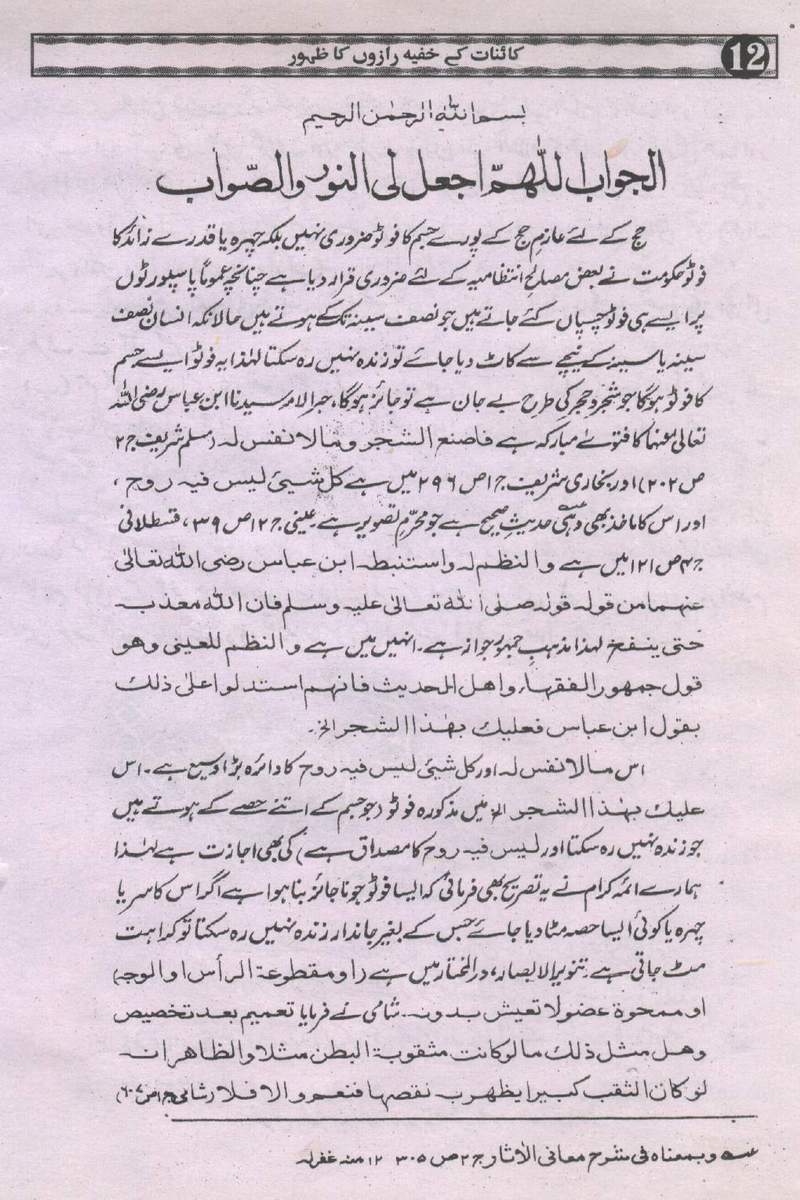 کائنات کے خفیہ رازوں کا ظہور
12
بسم اللہ الرحمٰن الرحیم
الجواب اللّٰھمّ اجعل لی النور والصّواب
حج کے لئے عازم حج کے پورے جسم کا فوٹو ضروری نہیں بلکہ چہرہ یا قدرے زائد کا
فوٹو حکومت نے بعض مصالح انتظامیہ کے لئے ضروری قرار دیا ہے چنانچہ عموماً پاسپورٹوں
پر ایسے ہی فوٹو چسپاں کئے جاتے ہیں جو نصف سینہ تک کے ہوتے ہیں حالانکہ انسان نصف
سینہ یا سینہ کے نیچے سے کاٹ دیا جائے تو زندہ نہیں رہ سکتا لہٰذا یہ فوٹو ایسے جسم
کا فوٹو ہوگا جو شجر و حجر کی طرح بے جان ہے تو جائز ہوگا، حبر الامہ سیدنا ابن عباس رضی اللہ
تعالیٰ عنہما کا فتویٰ مبارکہ ہے فاصنع الشجر وما لا نفس لہ (مسلم شریف ج ۲
ص ۲۰۲) اور بخاری شریف ج ۱ ص ۲۹۶ میں ہے کل شیئ لیس فیہ روح،
اور اس کا ماخذ بھی وہی حدیث صحیح ہے جو محرّمِ تصویر ہے۔ عینی ج ۱۲ ص ۳۹، قسطلانی
ج ۴ ص ۱۲۱ میں ہے والنظم لہ واستنبطہ ابن عباس رضی اللہ تعالیٰ
عنہما من قولہ قولہ صلی اللہ تعالیٰ علیہ وسلم فان اللہ معذبہ
حتی ینفخ لہذا مذہبِ جمہور جواز ہے۔ انہیں میں ہے والنظم للعینی وھو
قول جمہور الفقہاء واھل الحدیث فانھم استدلوا علی ذلک
بقول ابن عباس فعلیک بھٰذا الشجر الخ۔
اس ما لا نفس لہ اور کل شیئ لیس فیہ روح کا دائرہ بڑا وسیع ہے۔ اس
علیک بھٰذا الشجر الخ میں مذکورہ فوٹو (جو جسم کے اتنے حصے کے ہوتے ہیں
جو زندہ نہیں رہ سکتا اور لیس فیہ روح کا مصداق ہے) کی بھی اجازت ہے لہٰذا
ہمارے ائمہ کرام نے یہ تصریح بھی فرمائی کہ ایسا فوٹو جو ناجائز بنا ہوا ہے اگر اس کا سر یا
چہرہ یا کوئی ایسا حصہ مٹا دیا جائے جس کے بغیر جاندار زندہ نہیں رہ سکتا تو کراہت
مٹ جاتی ہے۔ تنویر الابصار، در المختار میں ہے (او مقطوعۃ الرأس او الوجہ)
او ممحوۃ عضو لا تعیش بدونہ۔ شامی نے فرمایا تعمیم بعد تخصیص
وھل مثل ذلک ما لو کانت مثقوبۃ البطن مثلا والظاھر انہ
لو کان الثقب کبیرا یظھر بہ نقصھا فنعم والا فلا (شامی ج ۱ ص ۶۰۷)
عہ وبمعناہ فی شرح معانی الاثار ج ۲ ص ۳۰۵ ۱۲ منہ غفرلہ